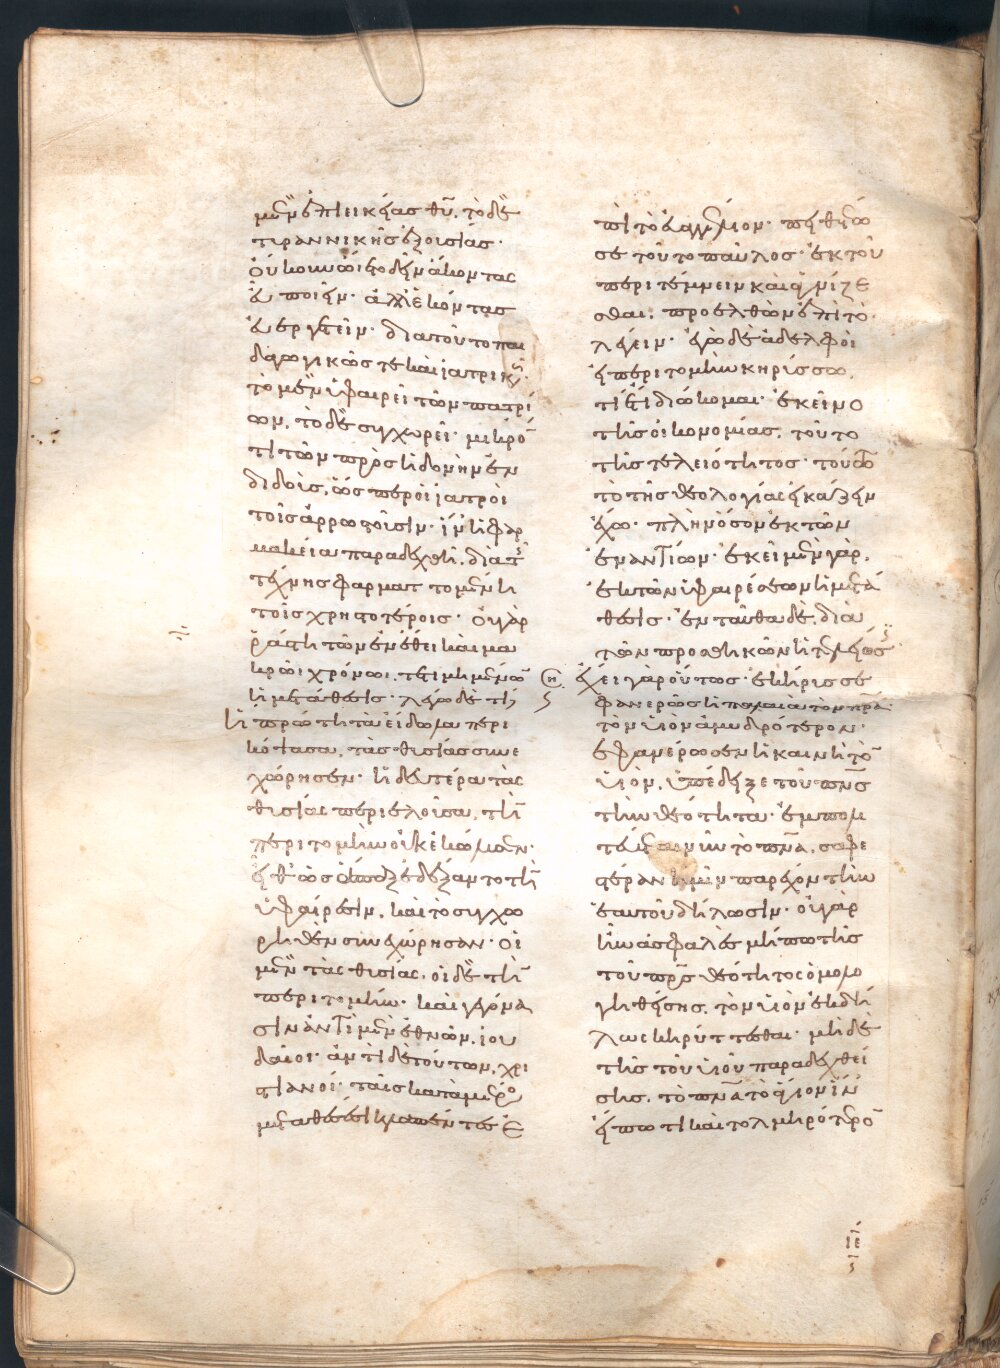 μὲν ἐπιεικείας θυ̅. τὸ δὲ
τυραννικῆς ἐξουσίας·
οὐκουν ὤιετο δεῖν ἄκοντας
εὖ ποιεῖν· ἀλλ' ἑκόντας
εὐεργετεῖν· διὰ τοῦτο παι
δαγωγικῶς τε καὶ ἰατρικῶς·
τὸ μὲν ὑφαιρεῖ τῶν πατρί
ων, τὸ δὲ συγχωρεῖ· μικρό̅
τι τῶν πρὸς ἡδονὴν ἐν
διδοὺς, ὥσπερ οἱ ἰατροὶ
τοῖς ἀρρωστοῦσιν· ἵν' ἡ φαρ
μακεία παραδεχθῆ, διὰ τ
τέχνης φαρματτομένη
τοῖς χρηστοτέροις· οὐ γὰρ
ῥάστη τῶν ἐν ἔθει καὶ μα
κρῶι χρόνωι. τετιμημένω̅
ἡ μετάθεσις· λέγω δὲ τί;
ἡ πρώτη τὰ εἴδωλα περι
κόψασα, τὰς θυσίας συνε
χώρησεν· ἡ δευτέρα τὰς
θυσίας περιελοῦσα, τὴ̅
περιτομὴν οὐκ ἐκώλυσεν·
εἶθ' ὡς ἅπαξ ἐδέξαντο τὴ̅
ὑφαίρεσιν, καὶ τὸ συγχω
ρηθὲν συνεχώρησαν· οἱ
μὲν τὰς θυσίας, οἱ δὲ τὴ̅
περιτομήν· καὶ γεγόνα
σιν ἀντὶ μὲν ἐθνῶν, ἰου
δαῖοι· ἀντὶ δὲ τούτων, χρι
στιανοί· ταῖς κατὰ μέρο
μεταθέσεσι κλαπέντες ἐ
πὶ τὸ εὐαγγέλιον· πειθέτω
σε τοῦτο παῦλος· ἐκ τοῦ
περιτέμνειν καὶ ἁγνίζε
σθαι· προελθὼν ἐπὶ τὸ
λέγειν· ἐγὼ δὲ ἀδελφοὶ
εἰ περιτομὴν κηρύσσω.
τί ἔτι διώκομαι· ἐκεῖνο
τῆς οἰκονομίας. τοῦτο
τῆς τελειότητος· τούτω
τὸ τῆς θεολογίας εἰκάζειν
ἔχω· πλὴν ὅσον ἐκ τῶν
ἐναντίων· ἐκεῖ μὲν γὰρ,
ἐκ τῶν ὑφαιρέσεων ἡ μετά
θεσις· ἐνταῦθα δὲ, διὰ
τῶν προσθηκῶν ἡ τελείωσις·
ἔχει γὰρ οὕτως· ἐκήρυσσε
φανερῶς ἡ παλαιὰ τὸν πρ̅α·
τὸν υἱὸν ἀμυδρότερον·
ἐφανέρωσεν ἡ καινὴ τὸ̅
υἱόν, ὑπέδειξε τοῦ πν̅ς
τὴν θεότητα· ἐμπολι
τεύεται νῦν τὸ πν̅α, σαφε
στέραν ἡμῖν παρέχον τὴν
ἑαυτοῦ δήλωσιν· οὐ γὰρ
ἦν ἀσφαλὲς μήπω τῆς
τοῦ πρ̅ς θεότητος ὁμολο
γηθείσης, τὸν υἱὸν ἐκδή
λως κηρύττεσθαι· μηδὲ
τῆς τοῦ υἱοῦ παραδεχθεί
σης, τὸ πν̅α τὸ ἅγιον ἵν'
εἴπω τι καὶ τολμηρότερο̅
ιε